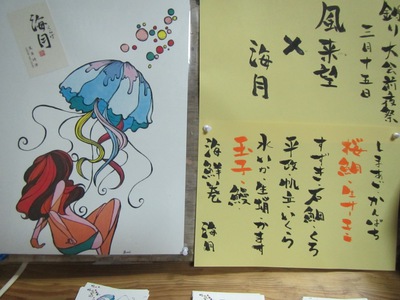 海月
釣り大会前夜祭
三月十五日
風来望
×
海月
しまあじ かんぱち
桜鯛
すずき 石鯛
平政 帆立 いくら
水いか 生蛸 かます
玉子 鰻
海鮮巻
海月